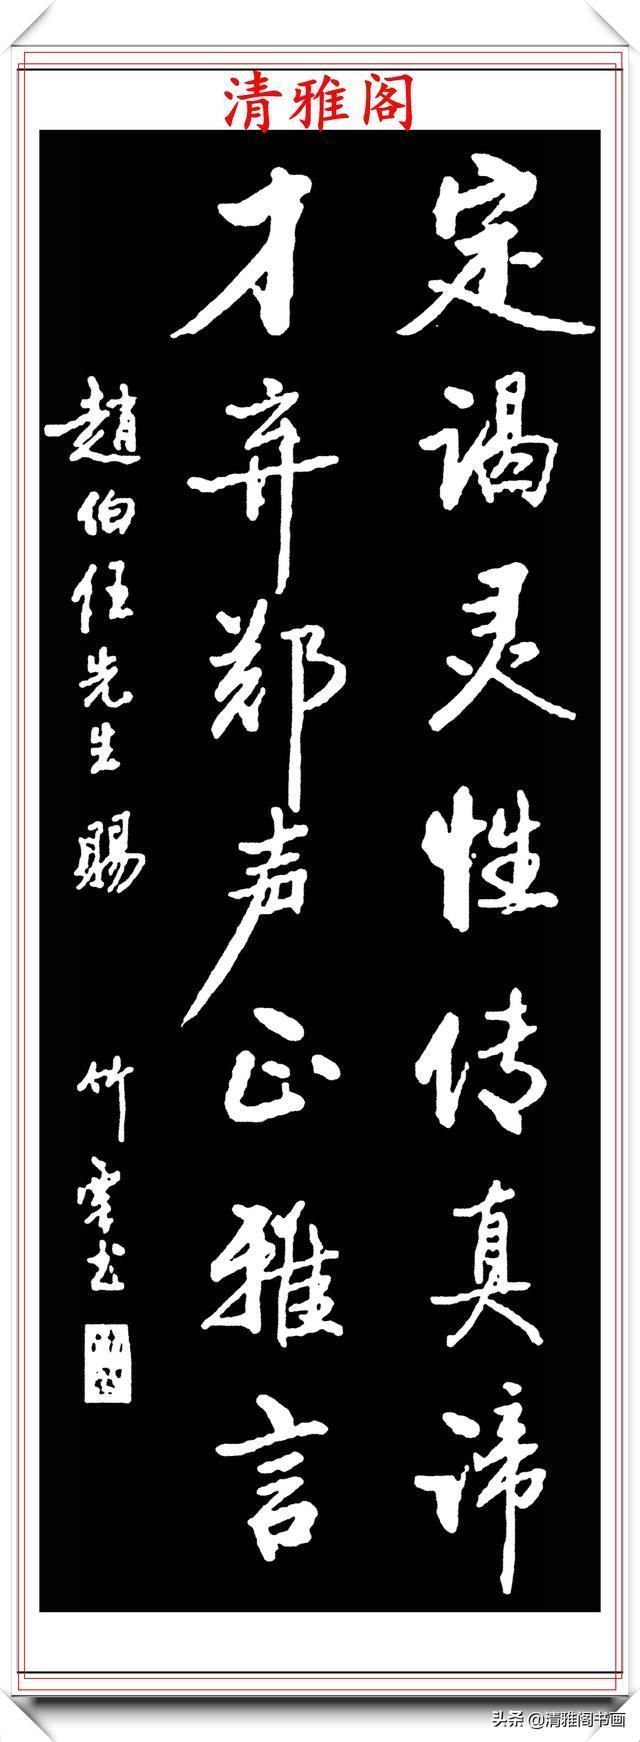 清雅阁
定谒灵性传真谛
才弃郑声正雅言
趙伯任先生賜
竹云书
头条@清雅阁书画